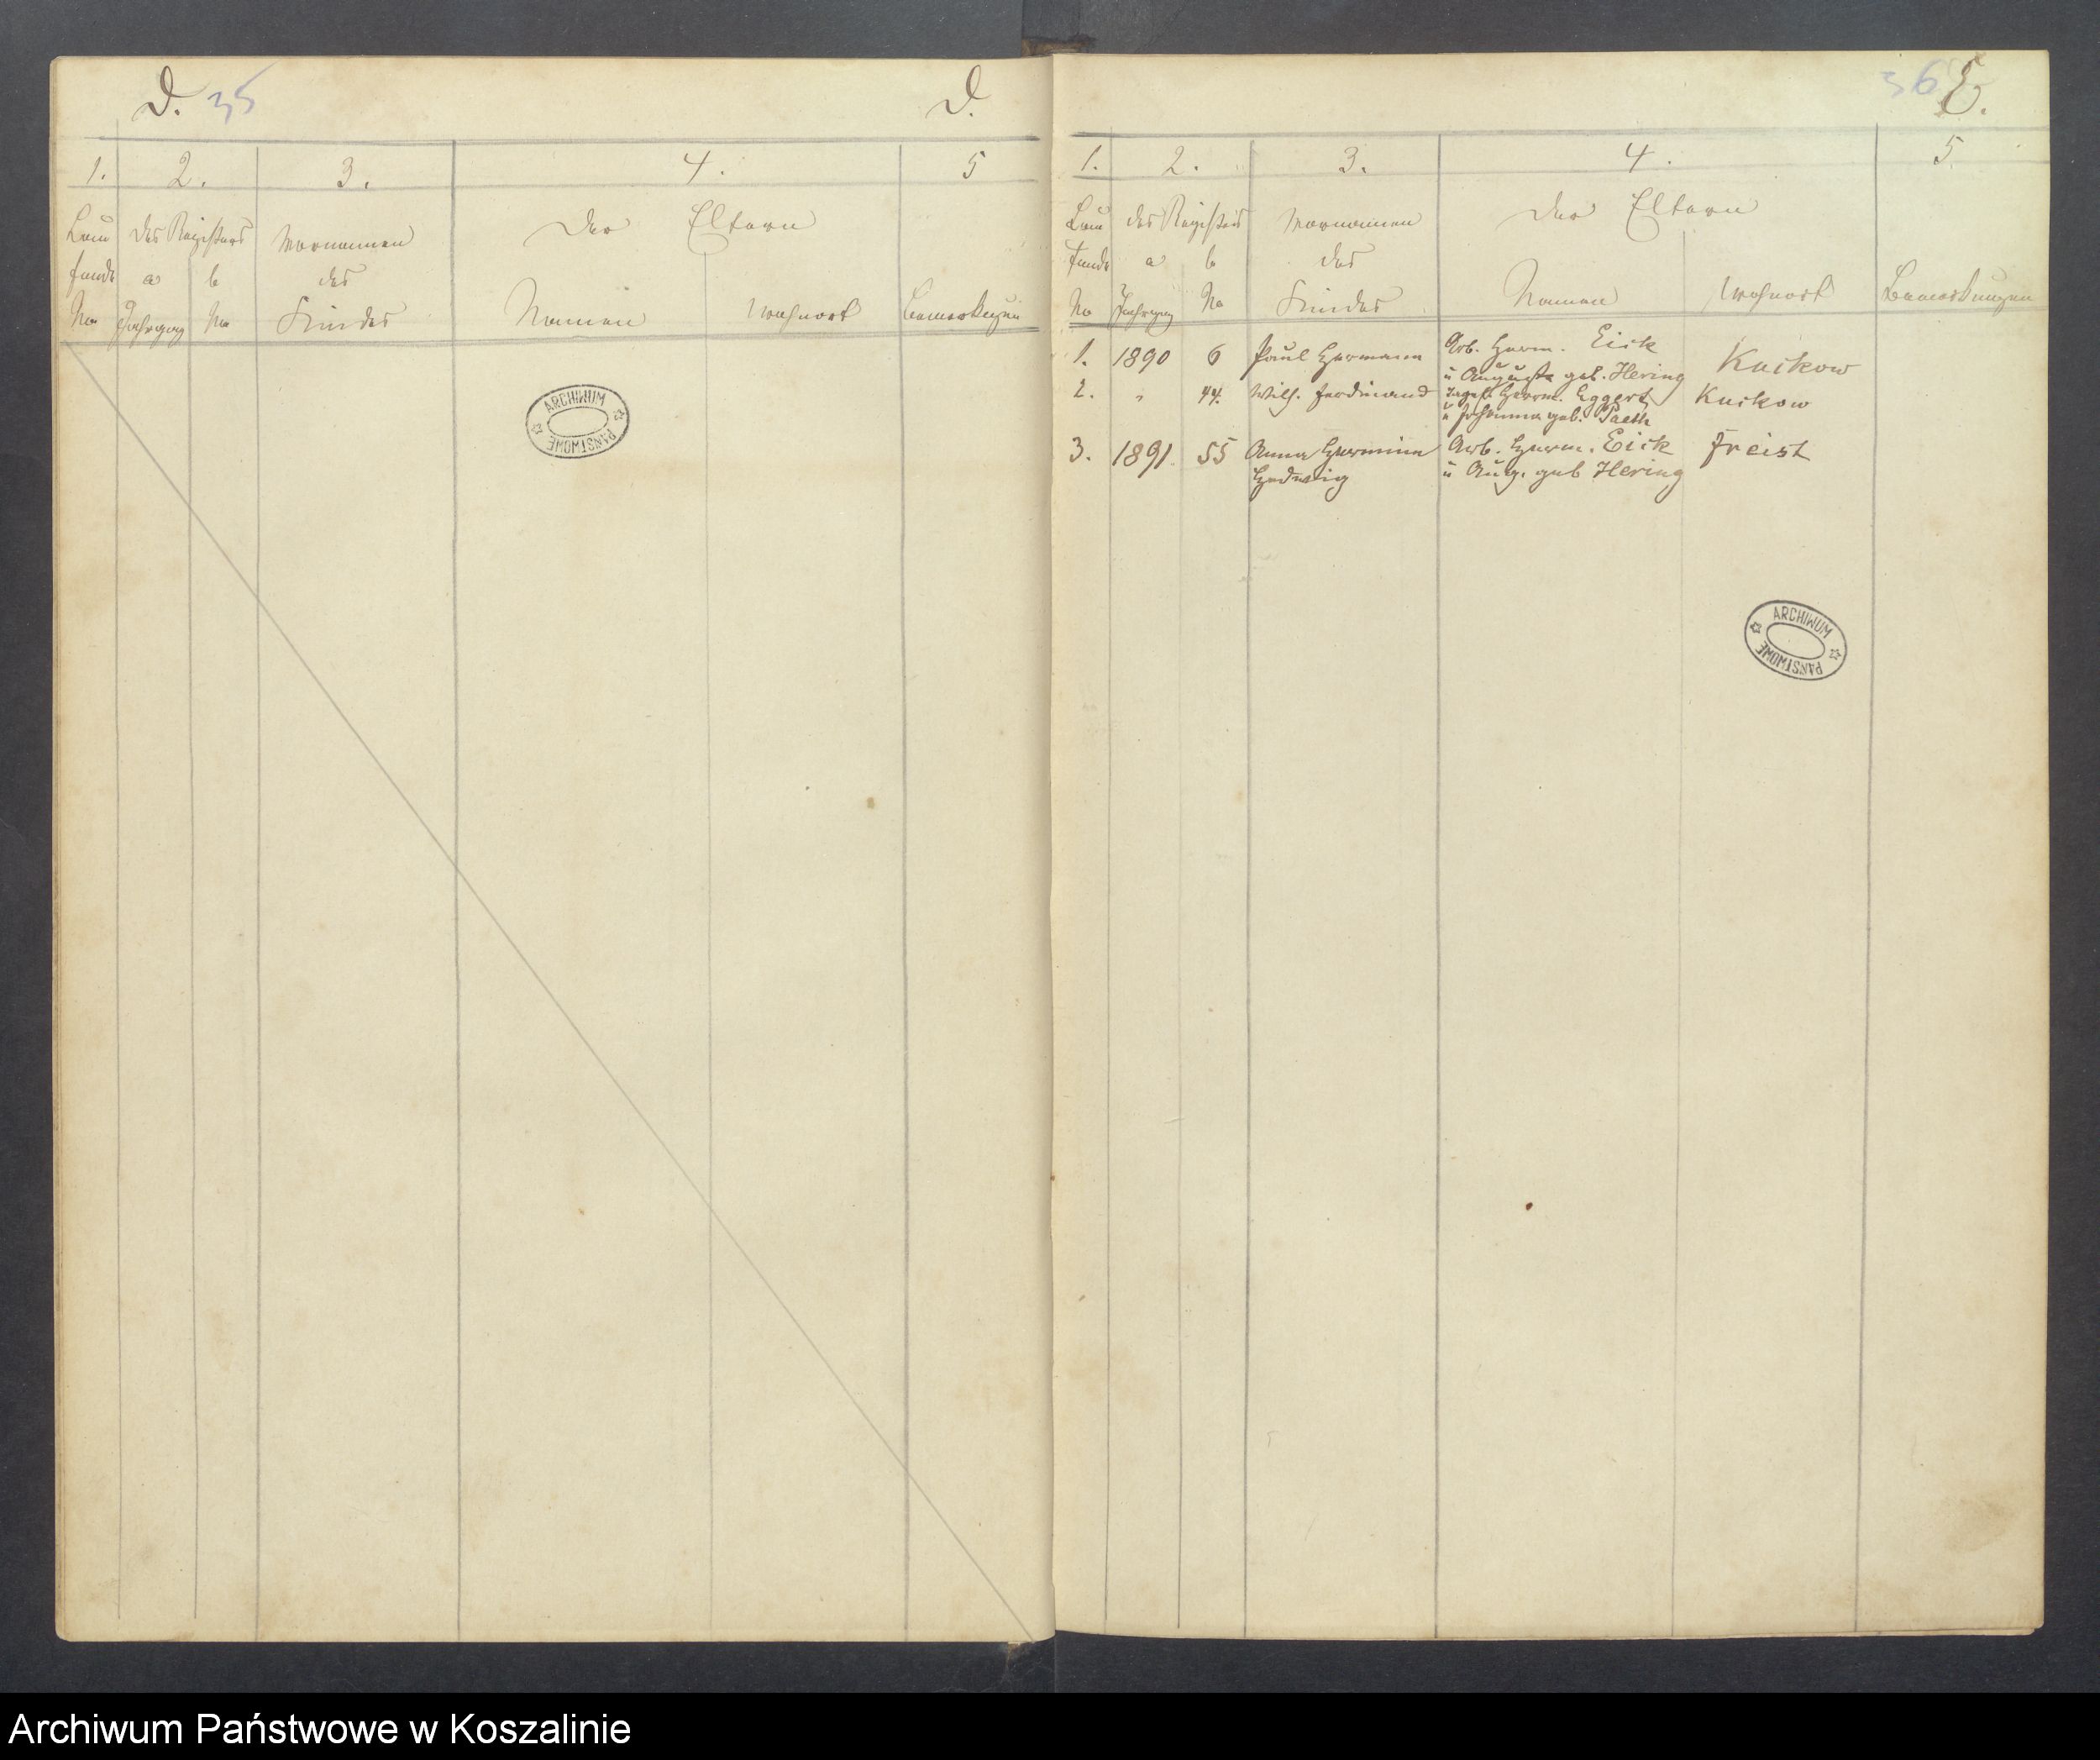 D. 35 D.
1. 2. 3. 4. 5
Lau des Registers Vornamen Der Eltern
fende a b des
No Jahrgang No Kindes Namen Wohnort Bemerkungen
ARCHIWUM
PAŃSTWOWE
36 E.
1. 2. 3. 4. 5
Lau des Registers Vornamen Der Eltern
fende a b des
No Jahrgang No Kindes Namen Wohnort Bemerkungen
1. 1890 6 Paul Hermann Arb. Herm. Eick Kuckow
u Auguste geb. Hering
2. " 44. Wilh. Ferdinand Herm. Eggert Kuckow
u Johanna geb. Paeth
3. 1891. 55 Anna Hermine Arb. Herm. Eick Freist
Hedwig u Aug. geb Hering
ARCHIWUM
PAŃSTWOWE
Archiwum Państwowe w Koszalinie